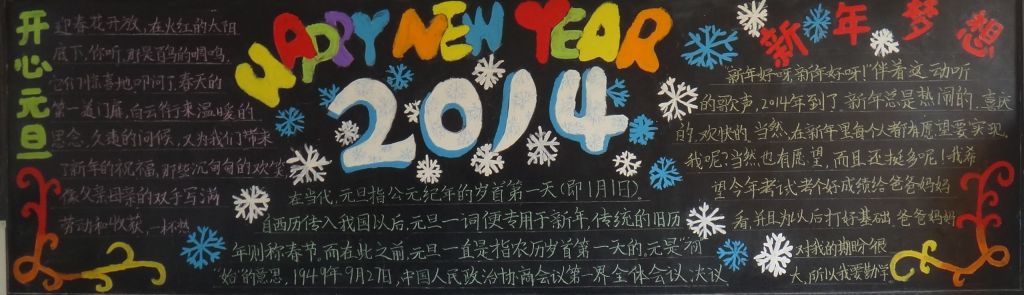 开心元旦
迎春花开放，在火红的太阳
底下，你听，那是百鸟的啁鸣，
它们惊喜地叩问了春天的
第一道门扉，白云衍来温暖的
思念，久违的问候，又为我们带来
了新年的祝福，那些沉甸甸的欢笑
像父亲母亲的双手写满
劳动和收获，一杯然
HAPPY NEW YEAR
2014
在当代，元旦指公元纪年的岁首第一天（即1月1日）。
自西历传入我国以后，元旦一词便专用于新年，传统的旧历
年则称春节，而在此之前，元旦一直是指农历岁首第一天的，元是"初"
"始"的意思，1949年9月27日，中国人民政治协商会议第一界全体会议，决议
新年梦想
"新年好呀，新年好呀！"伴着这动听
的歌声，2014年到了，新年总是热闹的，喜庆
的，欢快的，当然，在新年里每个人都有愿望要实现，
我呢？当然也有愿望，而且还挺多呢！我希
望今年考试考个好成绩给爸爸妈妈
看，并且为以后打好基础，爸爸妈妈
对我的期盼很
大，所以我要勤学